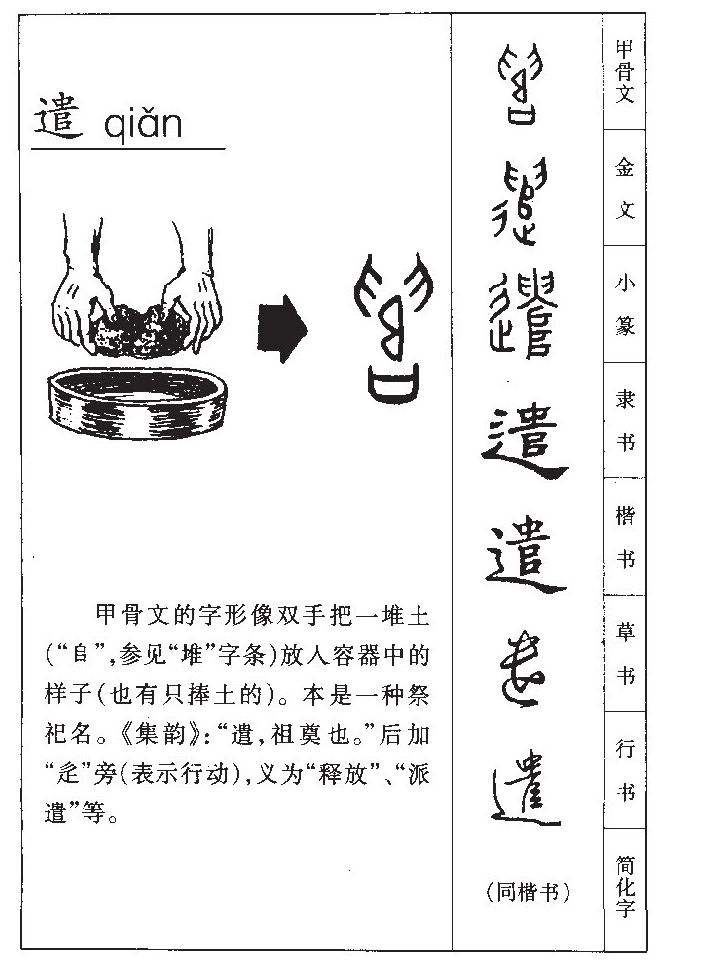 遣 qiǎn
甲骨文的字形像双手把一堆土
(“𠂤”,参见“堆”字条)放入容器中的
样子(也有只捧土的)。本是一种祭
祀名。《集韵》:“遣,祖奠也。”后加
“辵”旁(表示行动),义为“释放”、“派
遣”等。
甲骨文
金文
小篆
遣 隶书
遣 楷书
遣 草书
遣 行书
(同楷书) 简化字